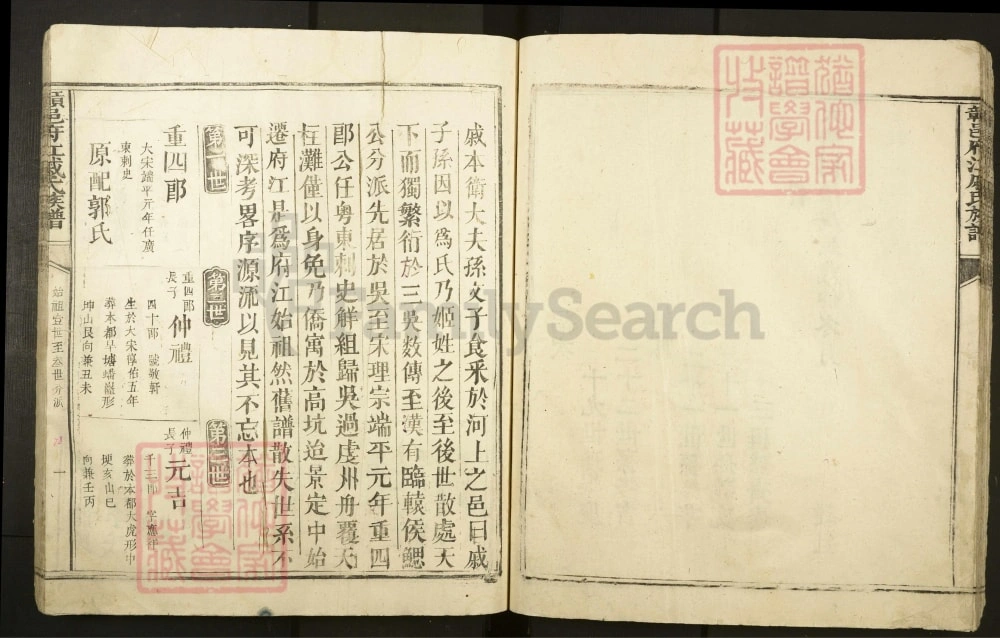 戚本衛大夫孫文子食釆於河上之邑曰戚
子孫因以爲氏乃姬姓之後至後世散處天
下而獨繁衍於三吳数傳至漢有臨轅侯鰓
公分派先居於吳至宋理宗端平元年重四
郎公任粤東刺史解組歸吳過虔州舟覆天
柱灘僅以身免乃僑寓於高坑迨景定中始
遷府江是爲府江始祖然舊譜散失世系不
可深考畧序源流以見其不忘本也
第一世
重四郎
大宋端平元年任廣
東刺史
原配郭氏
第二世
重四郎
長子
仲禮
四十郎 號敬軒
生於大宋淳佑五年
葬本都旱塘蟠龍形
坤山艮向兼丑未
第三世
仲禮
長子
元吉
葬於本都大虎形中
埂亥山巳
向兼壬丙
邑府江戚氏族譜
始祖壹世至叁世分派
一
FamilySearch